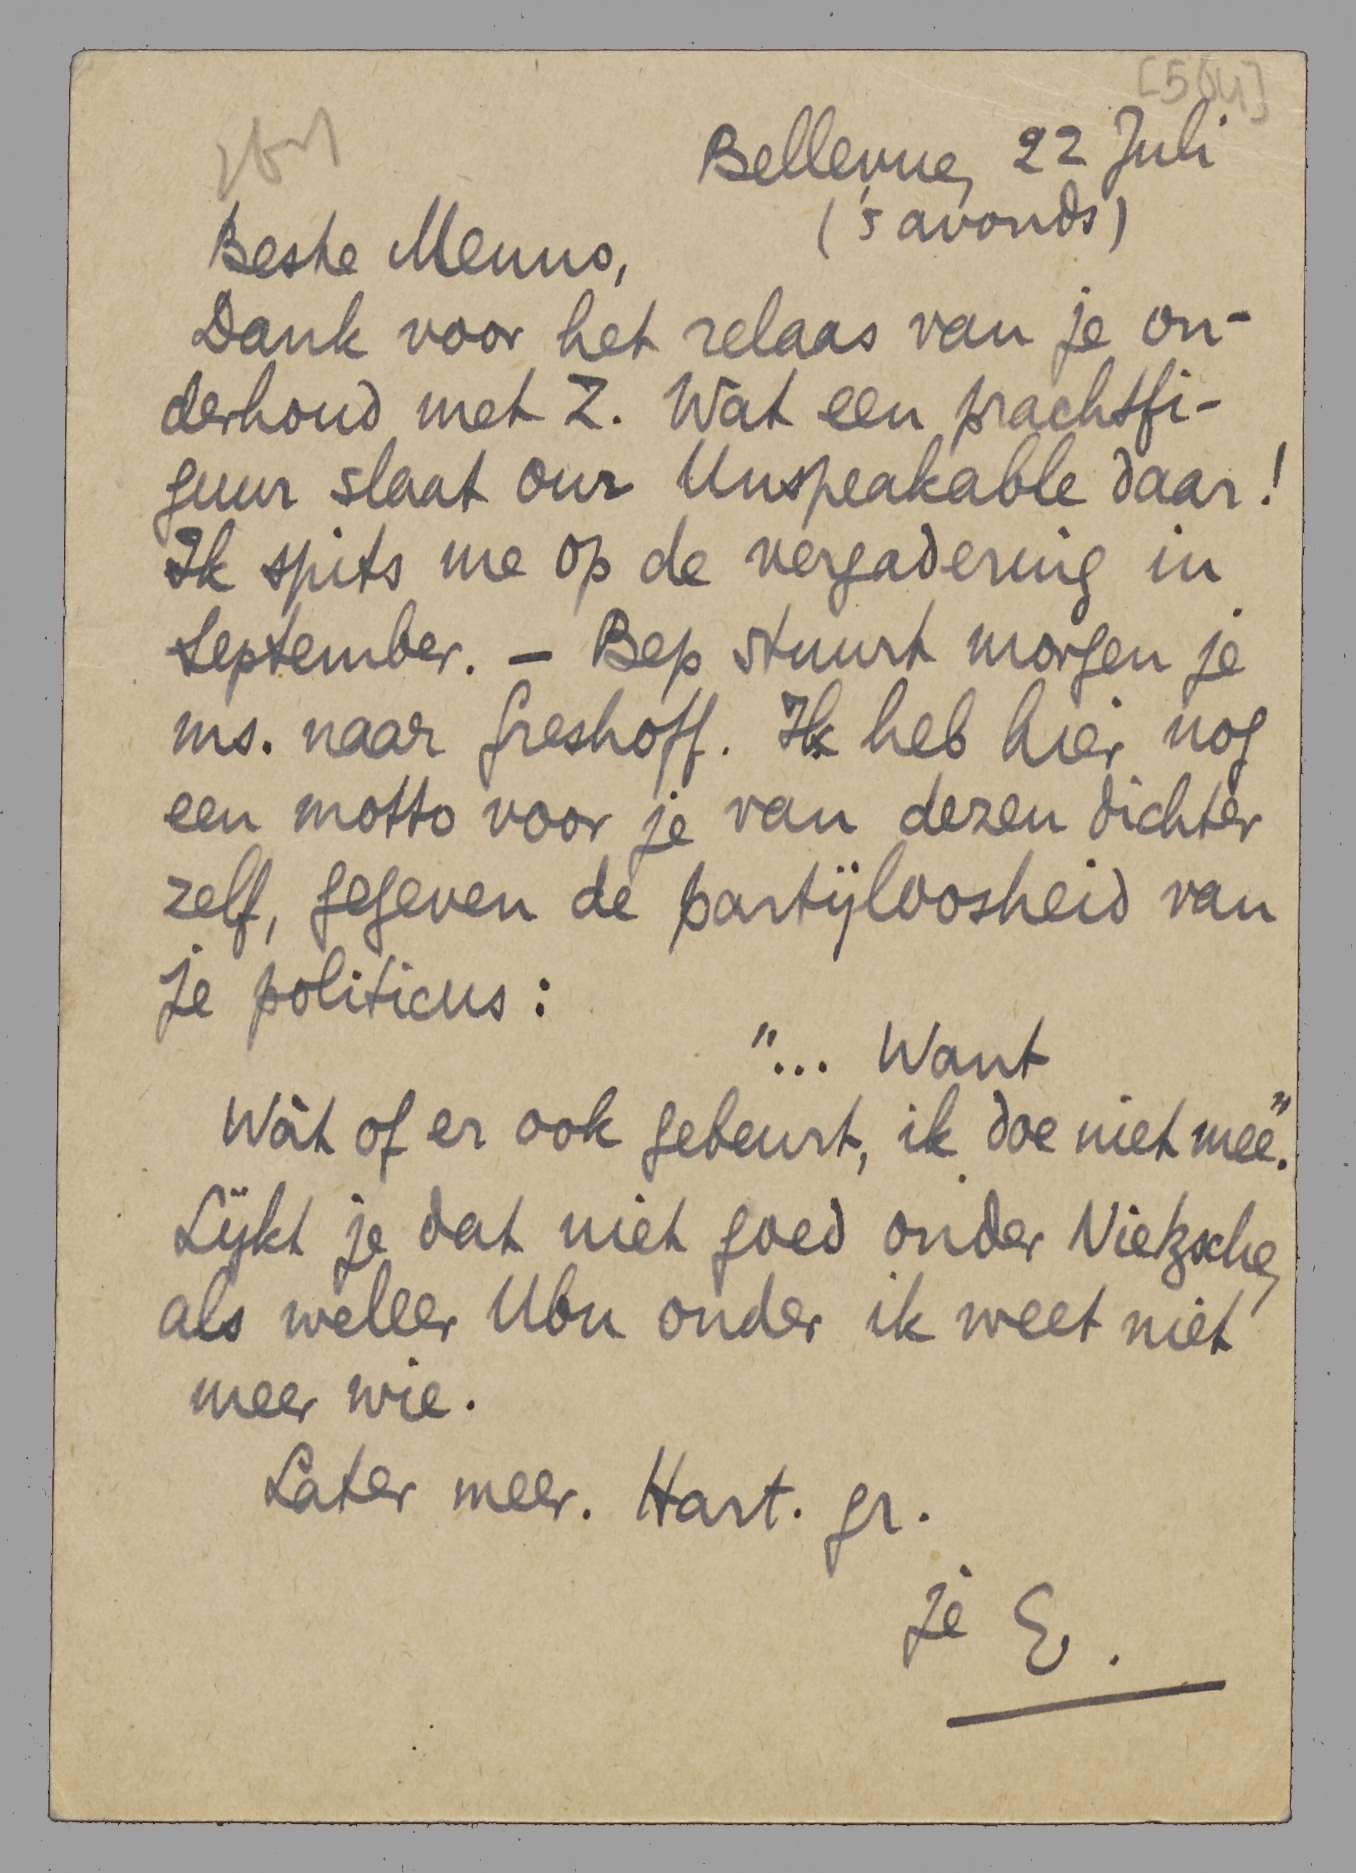 [564]
Bellevue, 22 Juli
('s avonds)
Beste Menno,
Dank voor het relaas van je on-
derhoud met Z. Wàt een prachtfi-
guur slaat our Unspeakable daar!
Ik spits me op de vergadering in
September. – Bep stuurt morgen je
ms. naar Greshoff. Ik heb hier nog
een motto voor je van dezen dichter
zelf, gegeven de partijloosheid van
je politicus:
"... Want
Wàt of er ook gebeurt, ik doe niet mee".
Lijkt je dat niet goed onder Nietzsche,
als weleer Ubu onder ik weet niet
meer wie.
Later meer. Hart. gr.
je E.